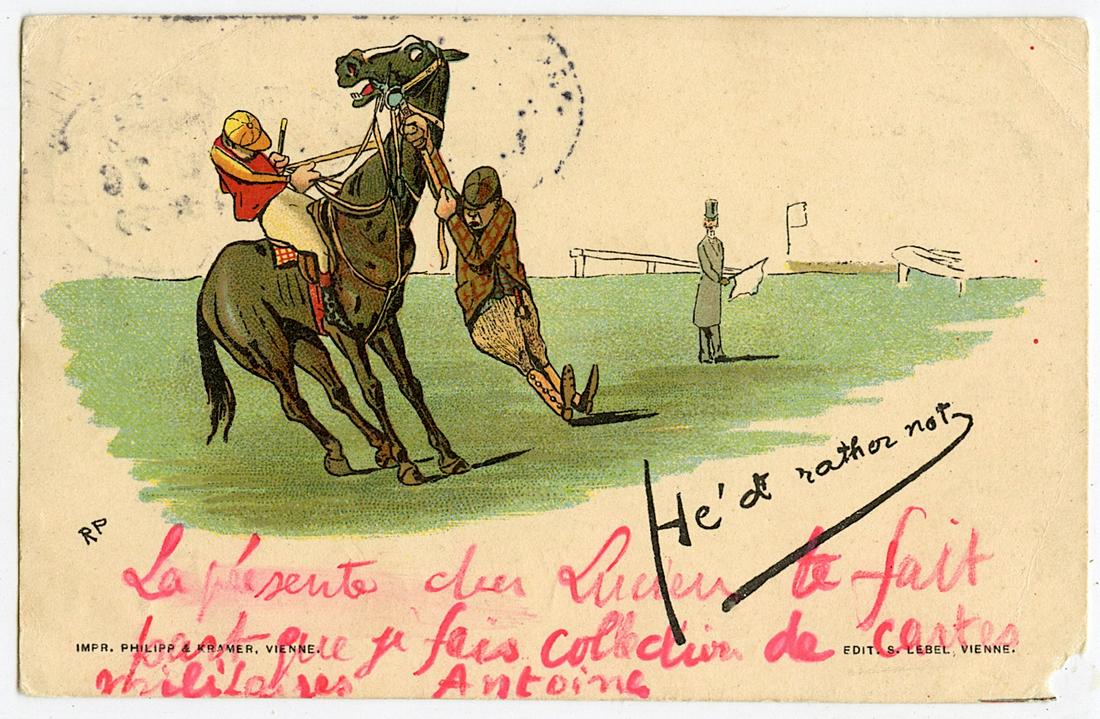 He'd rather not
RP
La présente cher Lucien te fait
part que je fais collection de cartes
IMPR. PHILIPP & KRAMER, VIENNE.
EDIT. S. LEBEL, VIENNE.
militaires Antoine